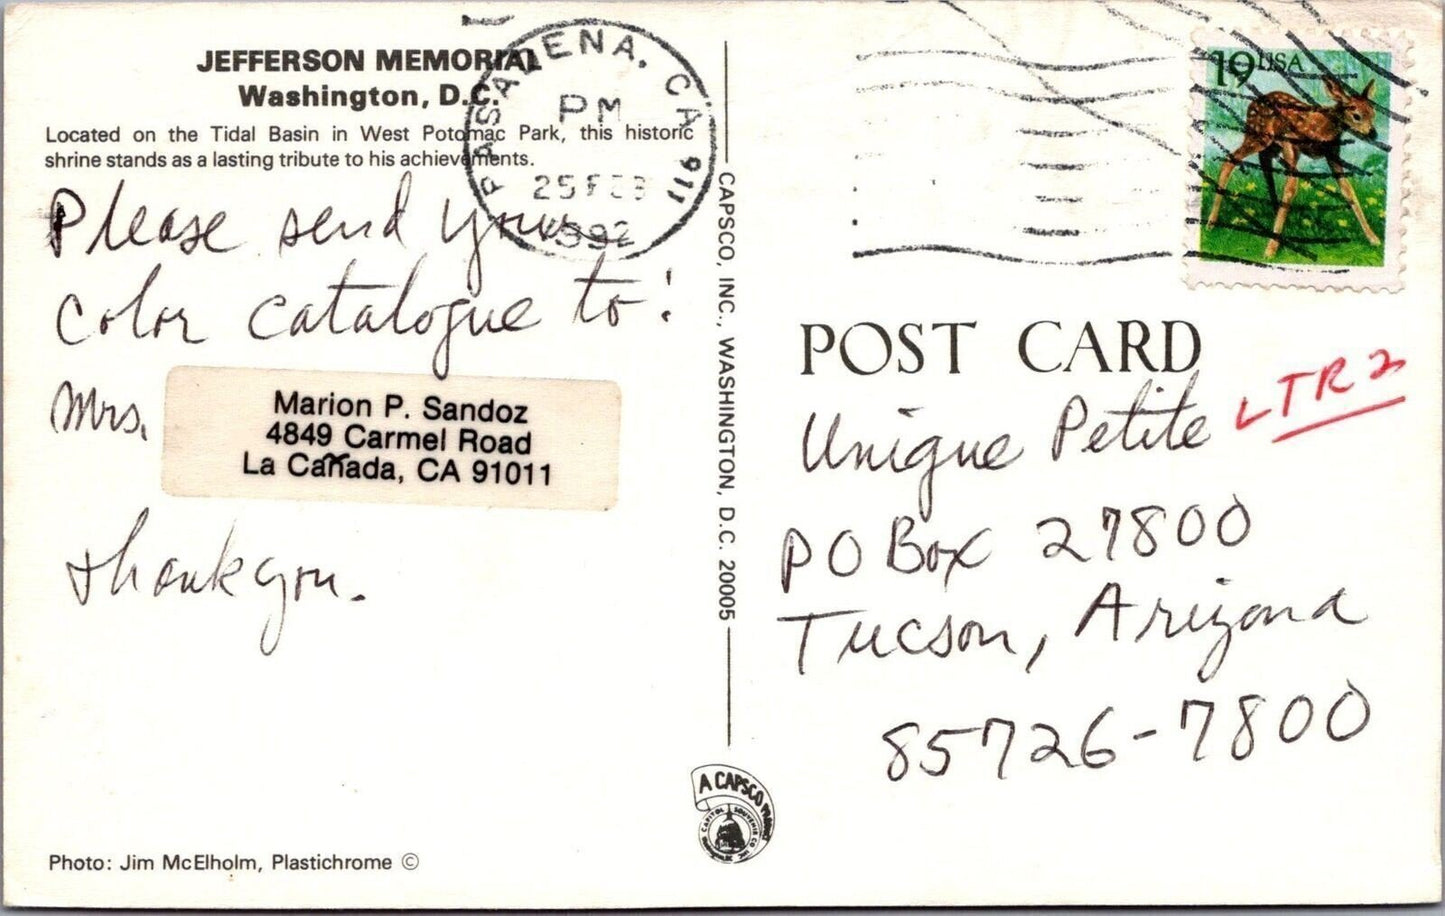 JEFFERSON MEMORIAL
Washington, D.C.
Located on the Tidal Basin in West Potomac Park, this historic
shrine stands as a lasting tribute to his achievements.
PASADENA, CA 911
PM
25 FEB
1992
Please send your
color catalogue to:
Mrs.
Marion P. Sandoz
4849 Carmel Road
La Cañada, CA 91011
Thank you.
Photo: Jim McElholm, Plastichrome ©
CAPSCO, INC., WASHINGTON, D.C. 20005
A CAPSCO PRODUCT
CAPITOL SOUVENIR CO. INC.
19 USA
POST CARD
Unique Petite
LTR 2
PO Box 27800
Tucson, Arizona
85726-7800